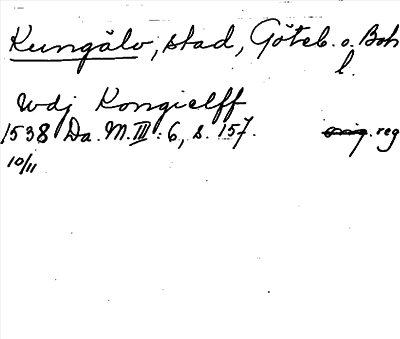 Kungälv, stad, Göteb. o. Boh
l.
wdj Kongielff
1538 Da. M. III : 6, s. 157. orig. reg
10/11